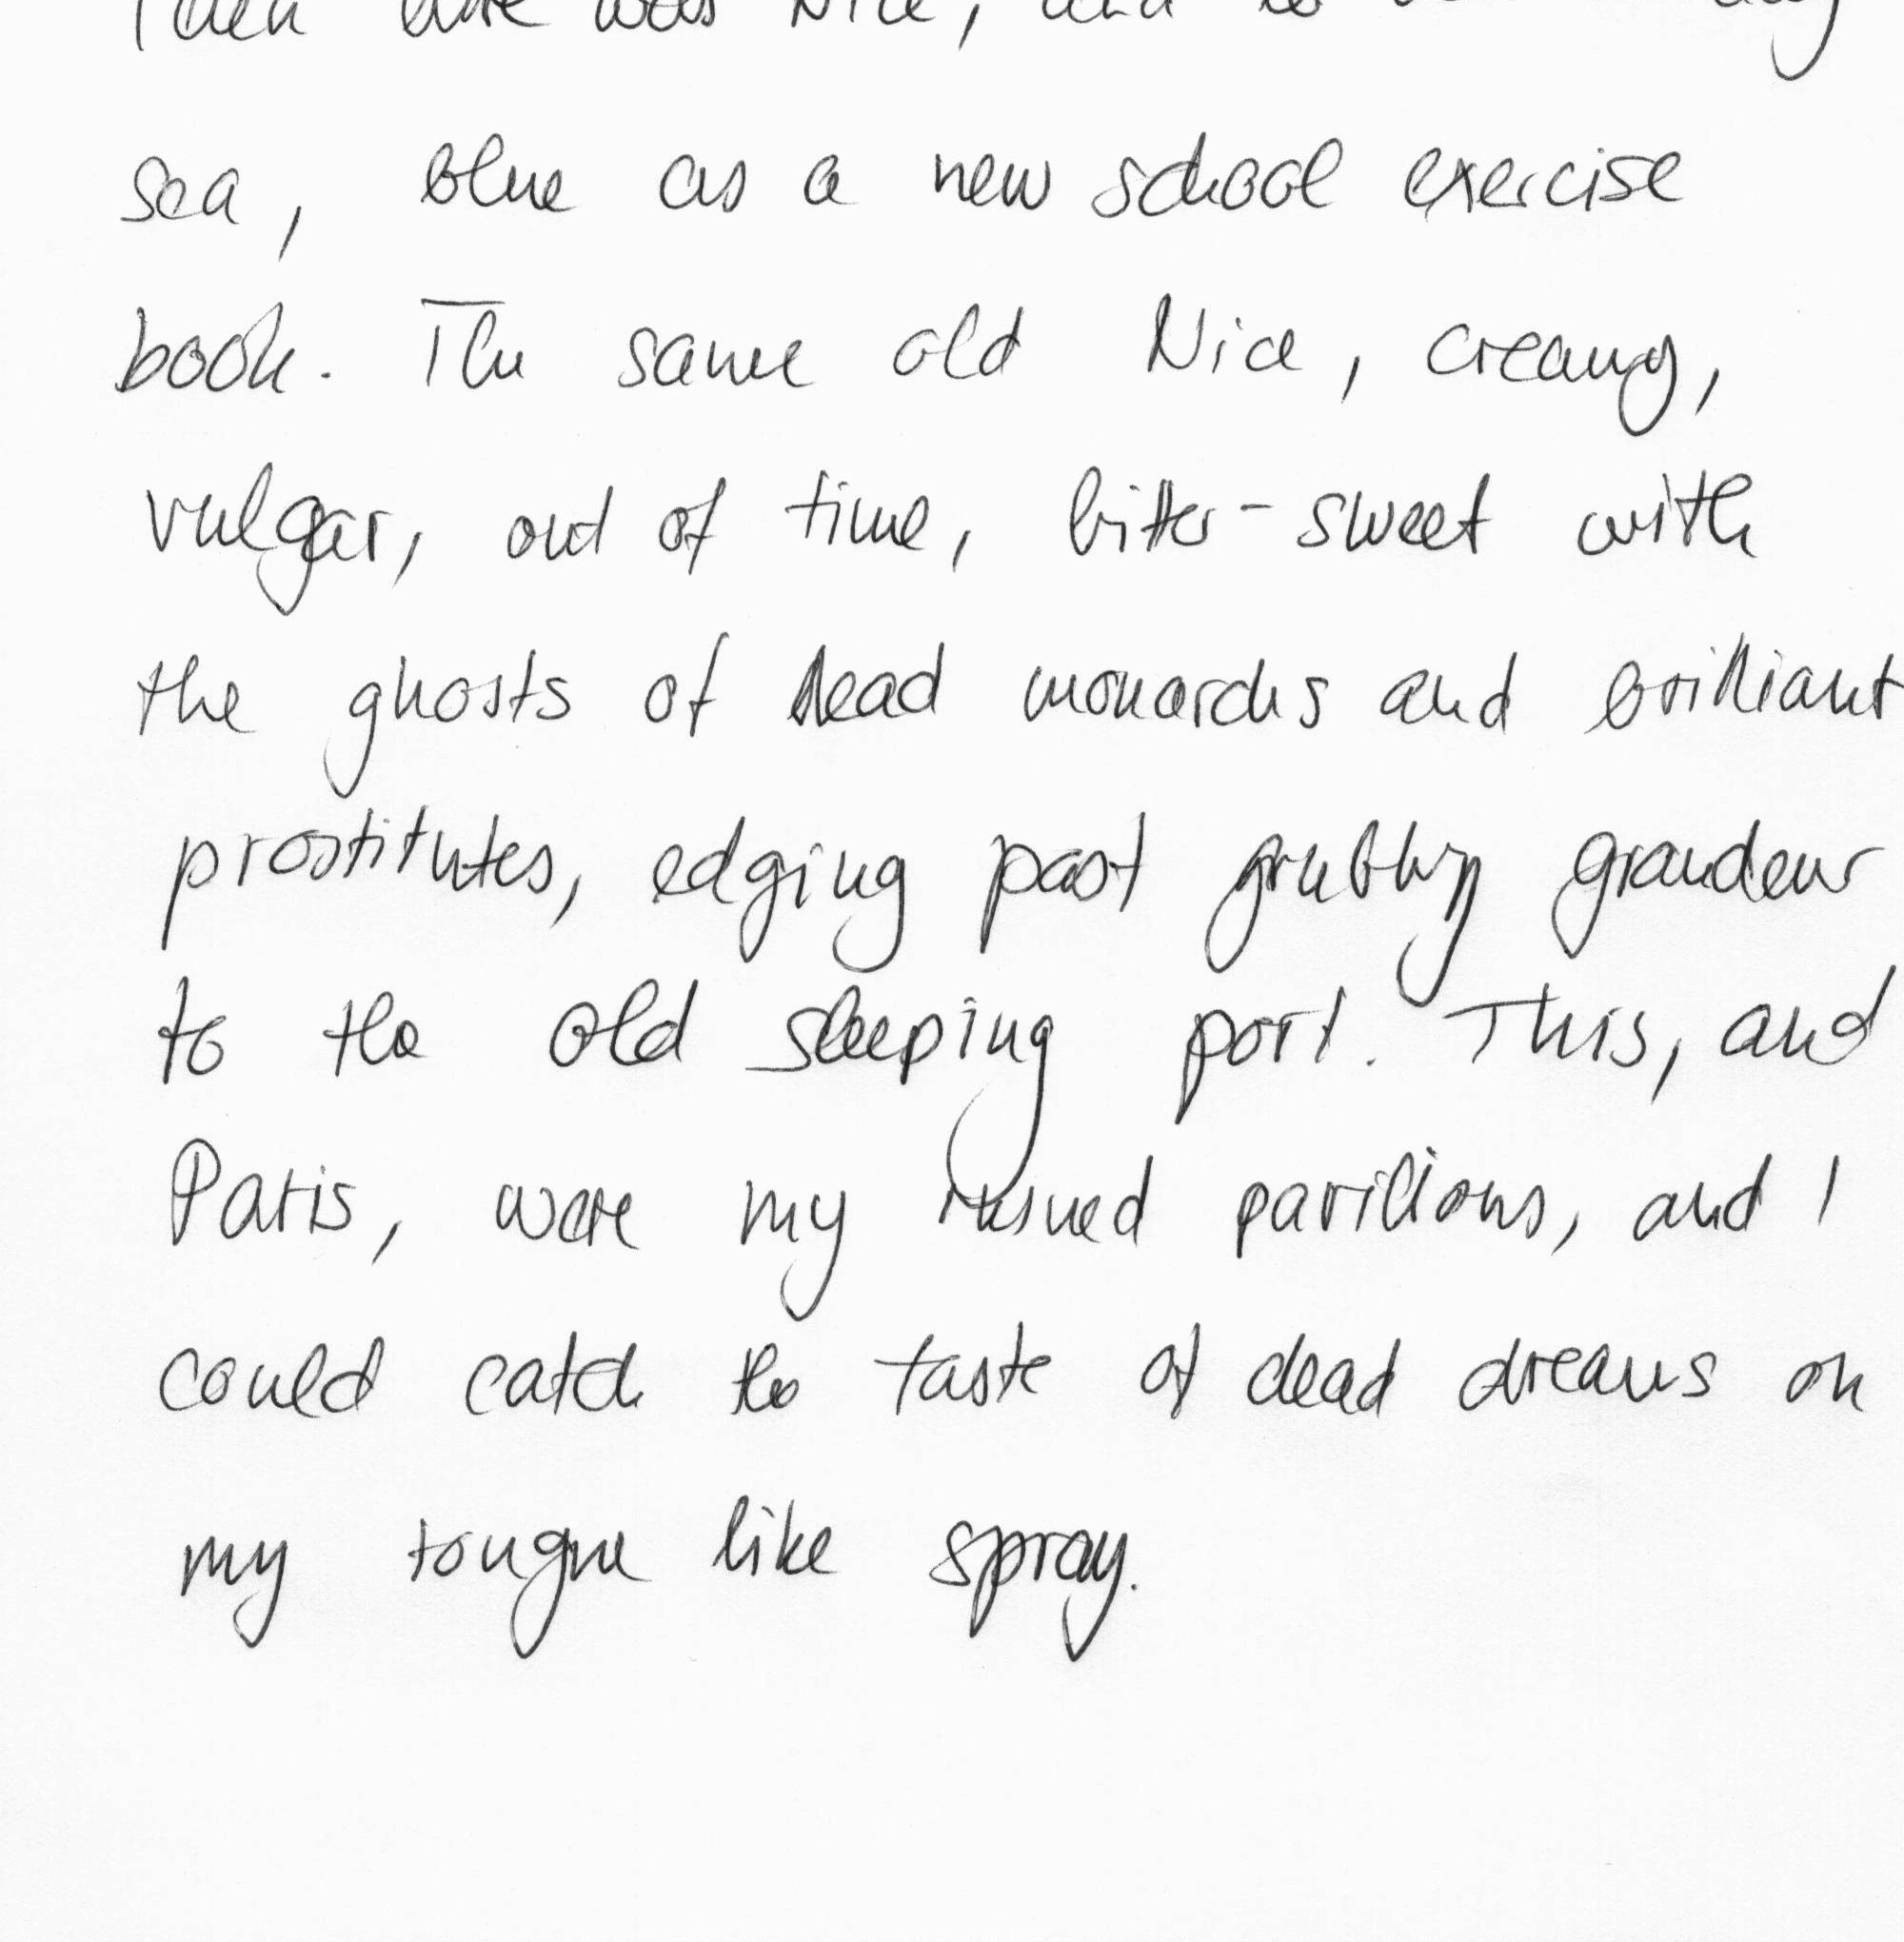 Then there was Nice, and
sea, blue as a new school exercise
book. The same old Nice, creamy,
vulgar, out of time, bitter-sweet with
the ghosts of dead monarchs and brilliant
prostitutes, edging past grubby grandeur
to the old sleeping port. This, and
Paris, were my ruined pavilions, and I
could catch the taste of dead dreams on
my tongue like spray.